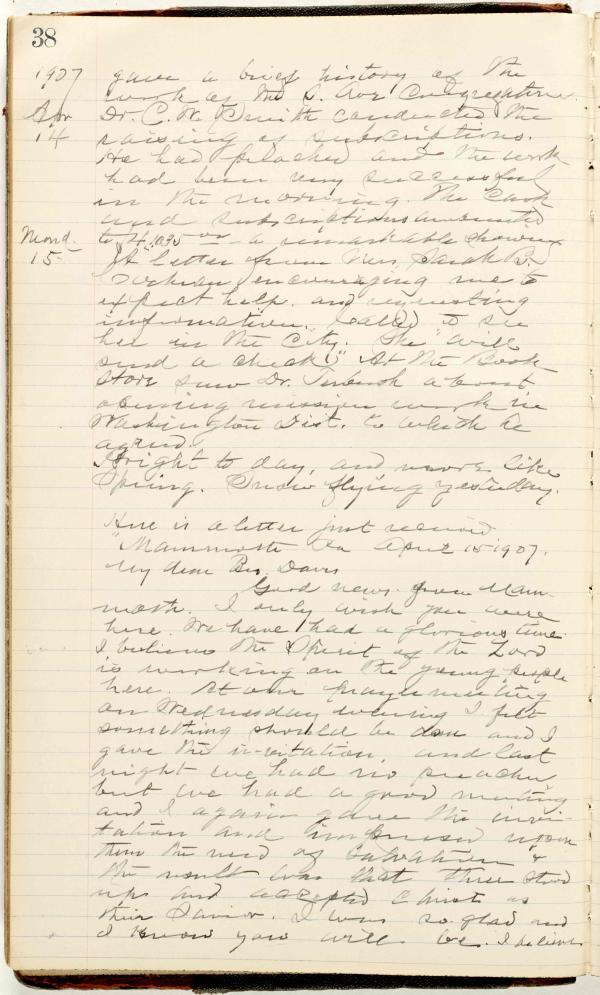 38
1907 gave a brief history of the
Apr work of the S. Ave Congregation.
14 Dr. C. W. Smith conducted the
raising of subscriptions.
He had preached and the work
had been very successful
in the morning. The cash
and subscriptions amounted
Mond. to $4,095 — a remarkable showing
15 A letter from Mrs. Sarah B.
Cochran, encouraging me to
expect help. and requesting
information. Called to see
her in the City. She "will
send a check." At the Book
Store saw Dr. about
opening mission work in
Washington Dist. to which he
agreed.
Bright to day, and more like
Spring. Snow flying yesterday.
Here is a letter just received
"Mammoth Pa April 15 1907.
My dear Bro. Davis
Good news from Mam-
moth. I only wish you were
here. We have had a glorious time.
I believe the Spirit of the Lord
is working on the young people
here. At our prayer meeting
on Wednesday evening I felt
something should be done and I
gave the invitation, and last
night we had no preacher
but we had a good meeting
and I again gave the invi-
tation and impressed upon
them the need of Salvation &
the result was that three stood
up and accepted Christ as
their Savior. I was so glad and
I know you will be. I believe